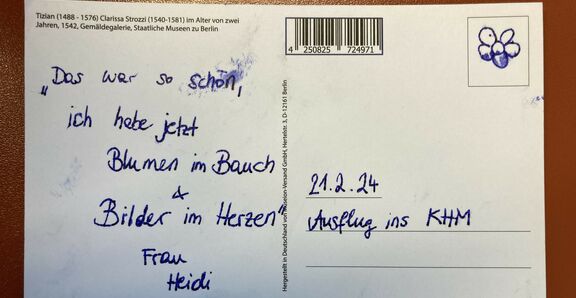 Tizian (1488 - 1576) Clarissa Strozzi (1540-1581) im Alter von zwei
Jahren, 1542, Gemäldegalerie, Staatliche Museen zu Berlin
4 250825 724971
„Das war so schön,
ich habe jetzt
Blumen im Bauch
&
Bilder im Herzen“
Frau
Heidi
Hergestellt in Deutschland von Museion-Versand GmbH, Hertelstr. 3, D-12161 Berlin
21.2.24
Ausflug ins KHM